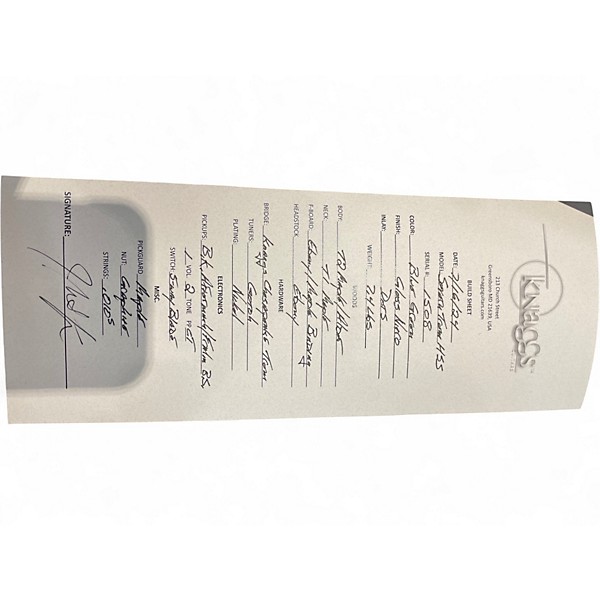 Knaggs
213 Church Street
Greensboro MD 21639, USA
knaggsguitars.com
BUILD SHEET
DATE: 7/16/24
MODEL: Severn Trem HSS
SERIAL #: 1508
COLOR: Blue Green
FINISH: Gloss Nitro
INLAY: Dots
WEIGHT: 7.4 Lbs
WOODS
BODY:
NECK: T1 Maple
F-BOARD: Ebony / Maple
HEADSTOCK: Ebony
HARDWARE
BRIDGE: Knaggs Chesapeake Trem
TUNERS: Gotoh
PLATING: Nickel
ELECTRONICS
PICKUPS: B.K.
1 VOL 2 TONE PP CT
SWITCH: 5 way Blade
MISC.
PICKGUARD: Maple
NUT: Graphite
STRINGS: .010's
SIGNATURE: